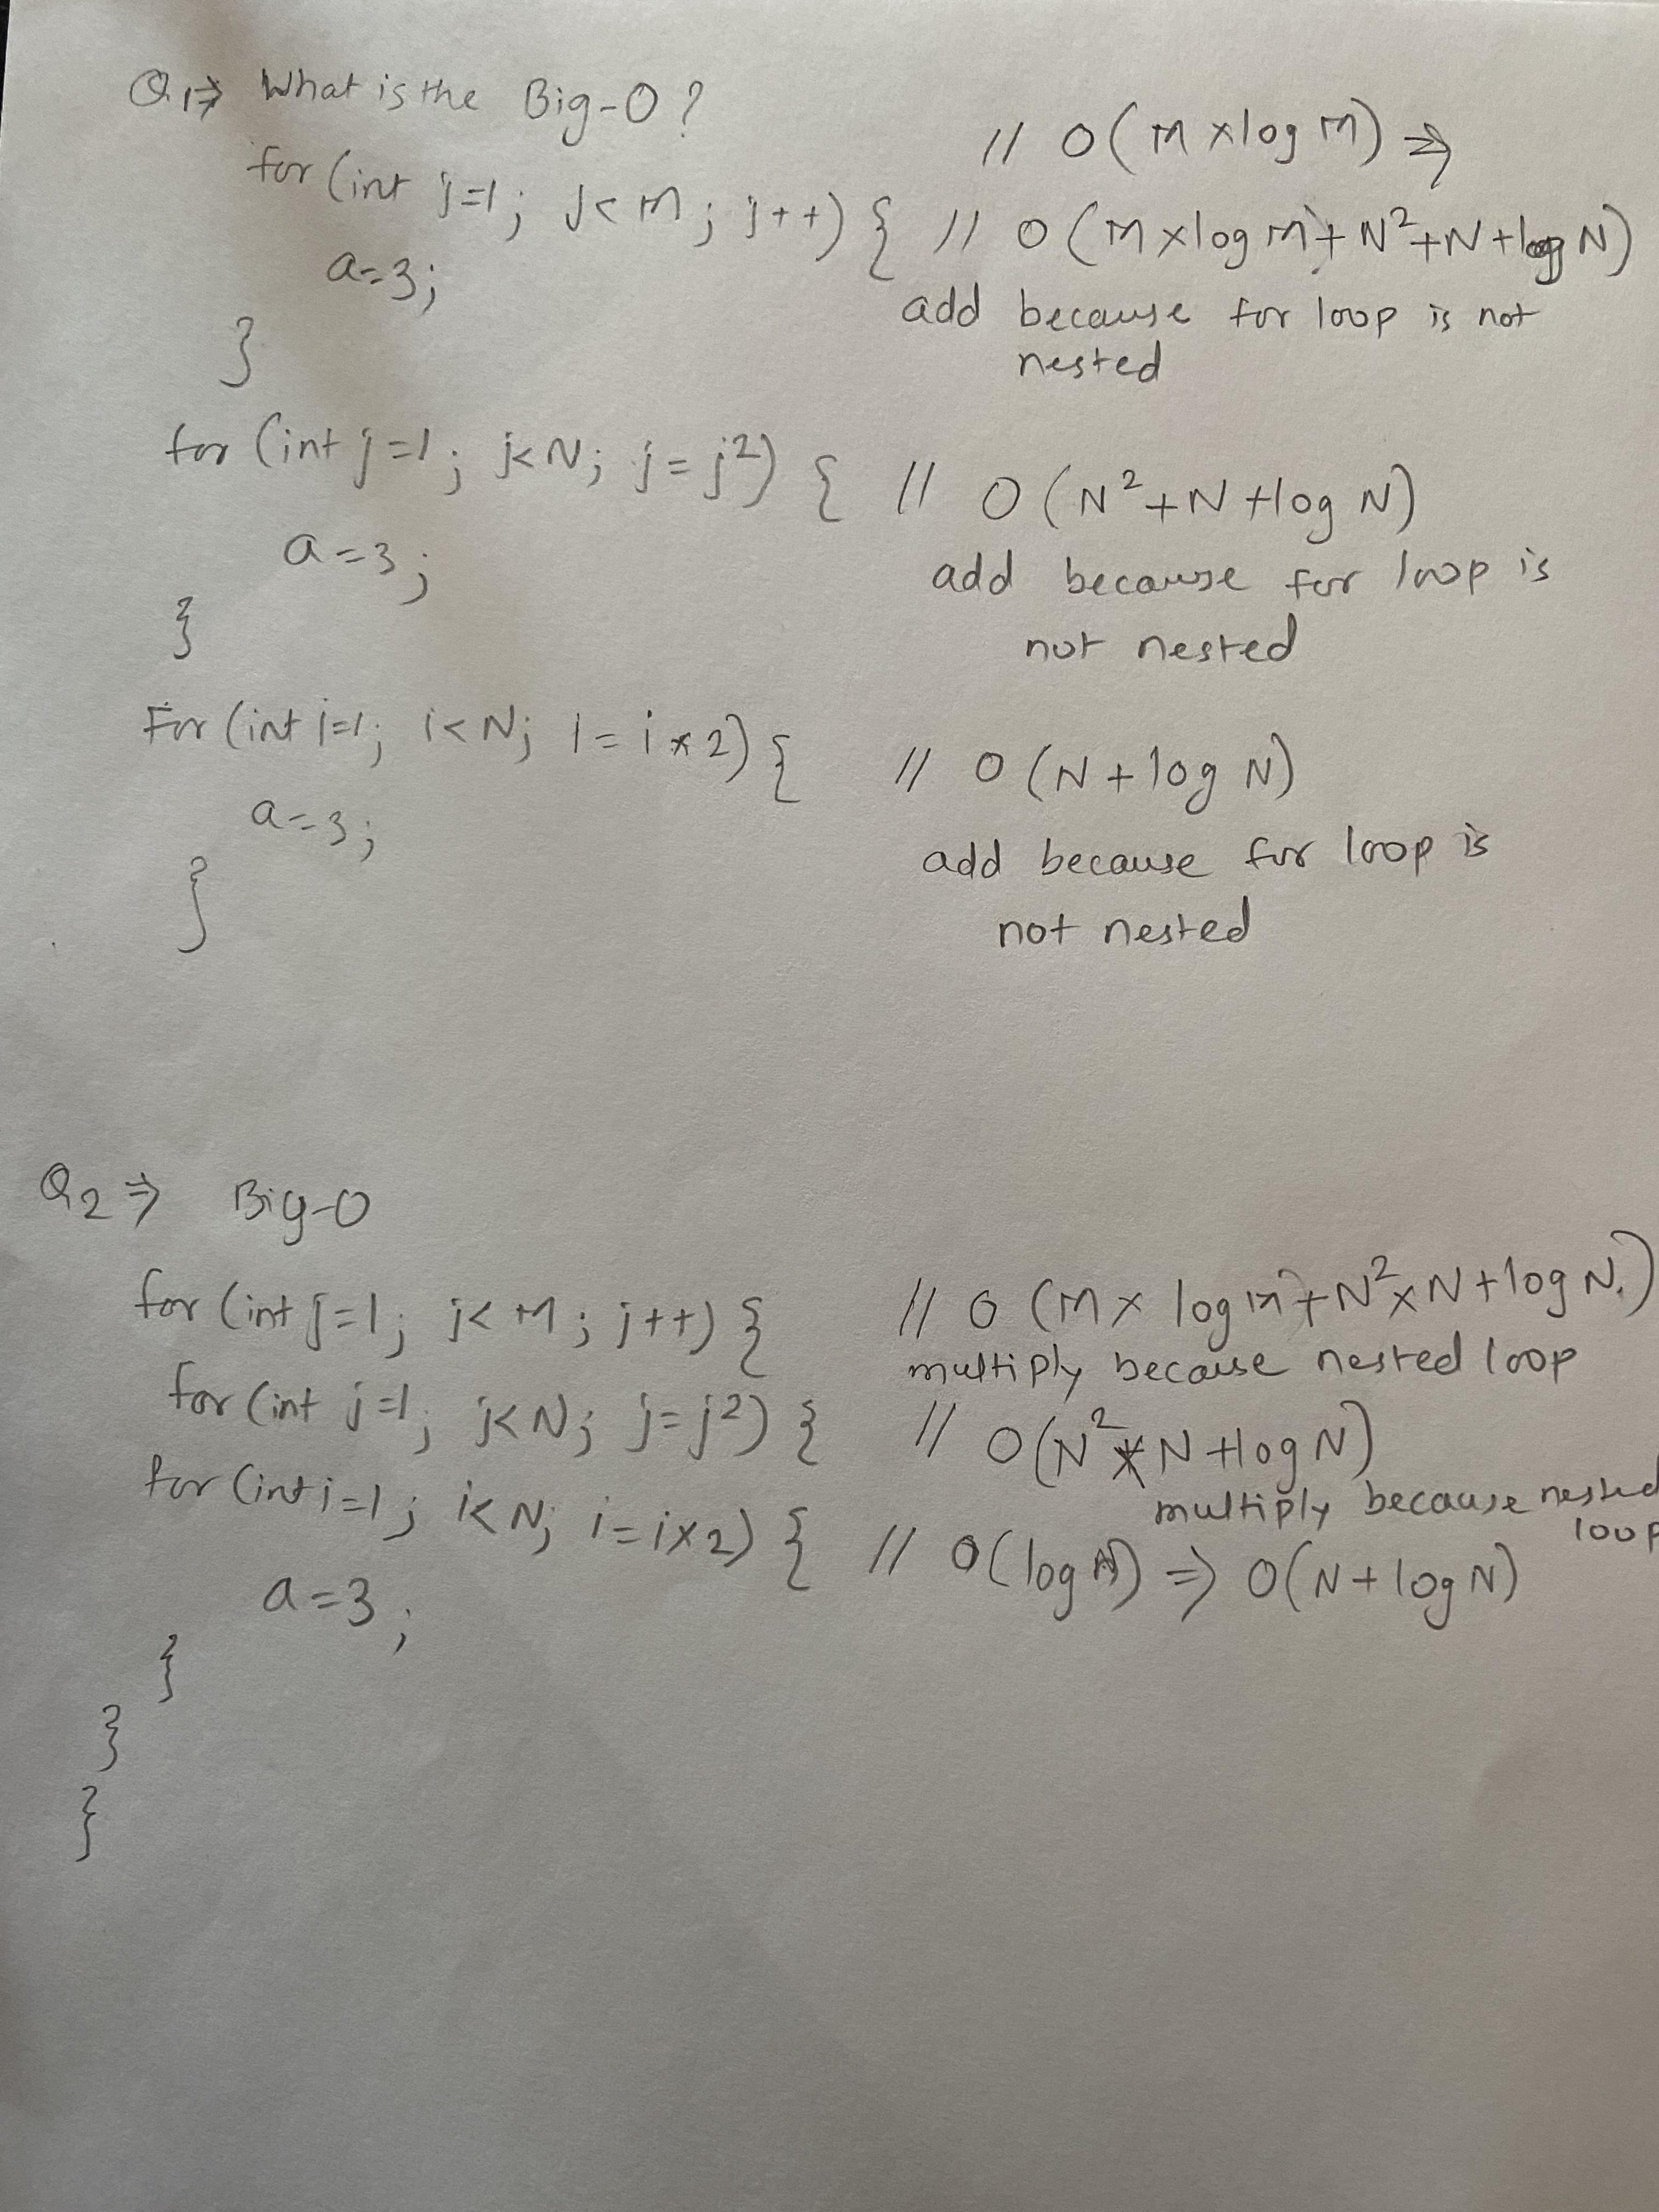 Q1⇒ What is the Big-O?
// O(M × log M) ⇒
for (int j=1; j<M; j++) { // O(M × log M + N²+N+log N)
a=3;
add because for loop is not
}
nested
for (int j=1; j<N; j=j²) { // O(N²+N+log N)
a=3;
add because for loop is
}
not nested
For (int i=1; i<N; i=i*2) { // O(N+log N)
a=3;
add because for loop is
}
not nested
Q2 ⇒ Big-O
for (int j=1; j<M; j++) { // O(M × log M + N² × N + log N.)
multiply because nested loop
for (int j=1; j<N; j=j²) { // O(N² × N + log N)
multiply because nested
loop
for (int i=1; i<N; i=i×2) { // O(log N) ⇒ O(N+log N)
a=3;
}
}
}